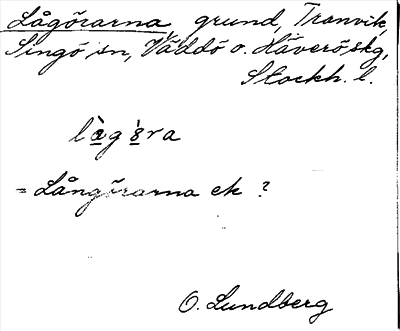 Lågörarna grund, Tranvik,
Singö sn, Väddö o. Häverö skg,
Stockh. l.
= Långörarna ek ?
O. Lundberg